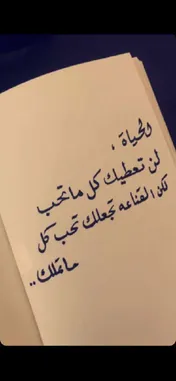 والحياة ،
لن تعطيك كل ما تحب
لكن القناعه تجعلك تحب كل
ما تملك..